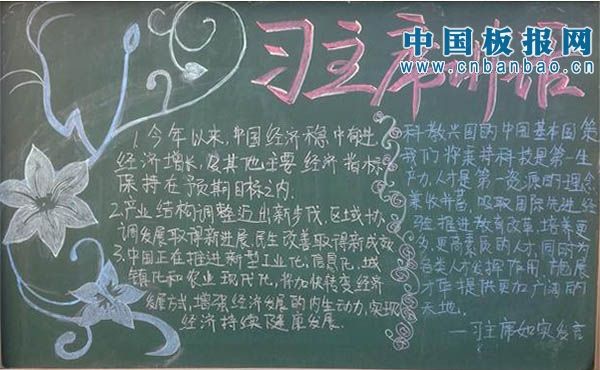 习主席讲话
中国板报网
www.cnbanbao.cn
1.今年以来,中国经济稳中有进
经济增长,及其他主要经济指标
保持在预期目标之内.
2.产业结构调整迈出新步伐,区域协
调发展取得新进展,民生改善取得新成效
3.中国正在推进新型工业化,信息化,城
镇化和农业现代化,将加快转变经济
发展方式,增强经济发展的内生动力,实现
经济持续健康发展.
科教兴国的中国基本国策
我们将秉持科技是第一生
产力,人才是第一资源的理念
兼收并蓄,吸取国际先进经
验,推进教育改革,培养更
多,更高素质的人才,同时为
各类人才发挥作用,施展
才华提供更加广阔的
天地.
—习主席如实发言